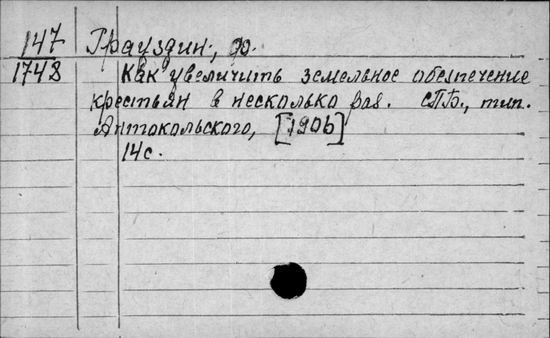 147 Грауздин, Ф.
1748 Как увеличить земельное обеспечение
крестьян в несколько раз. СПб., тип.
Антокольского, [1906]
14 с.